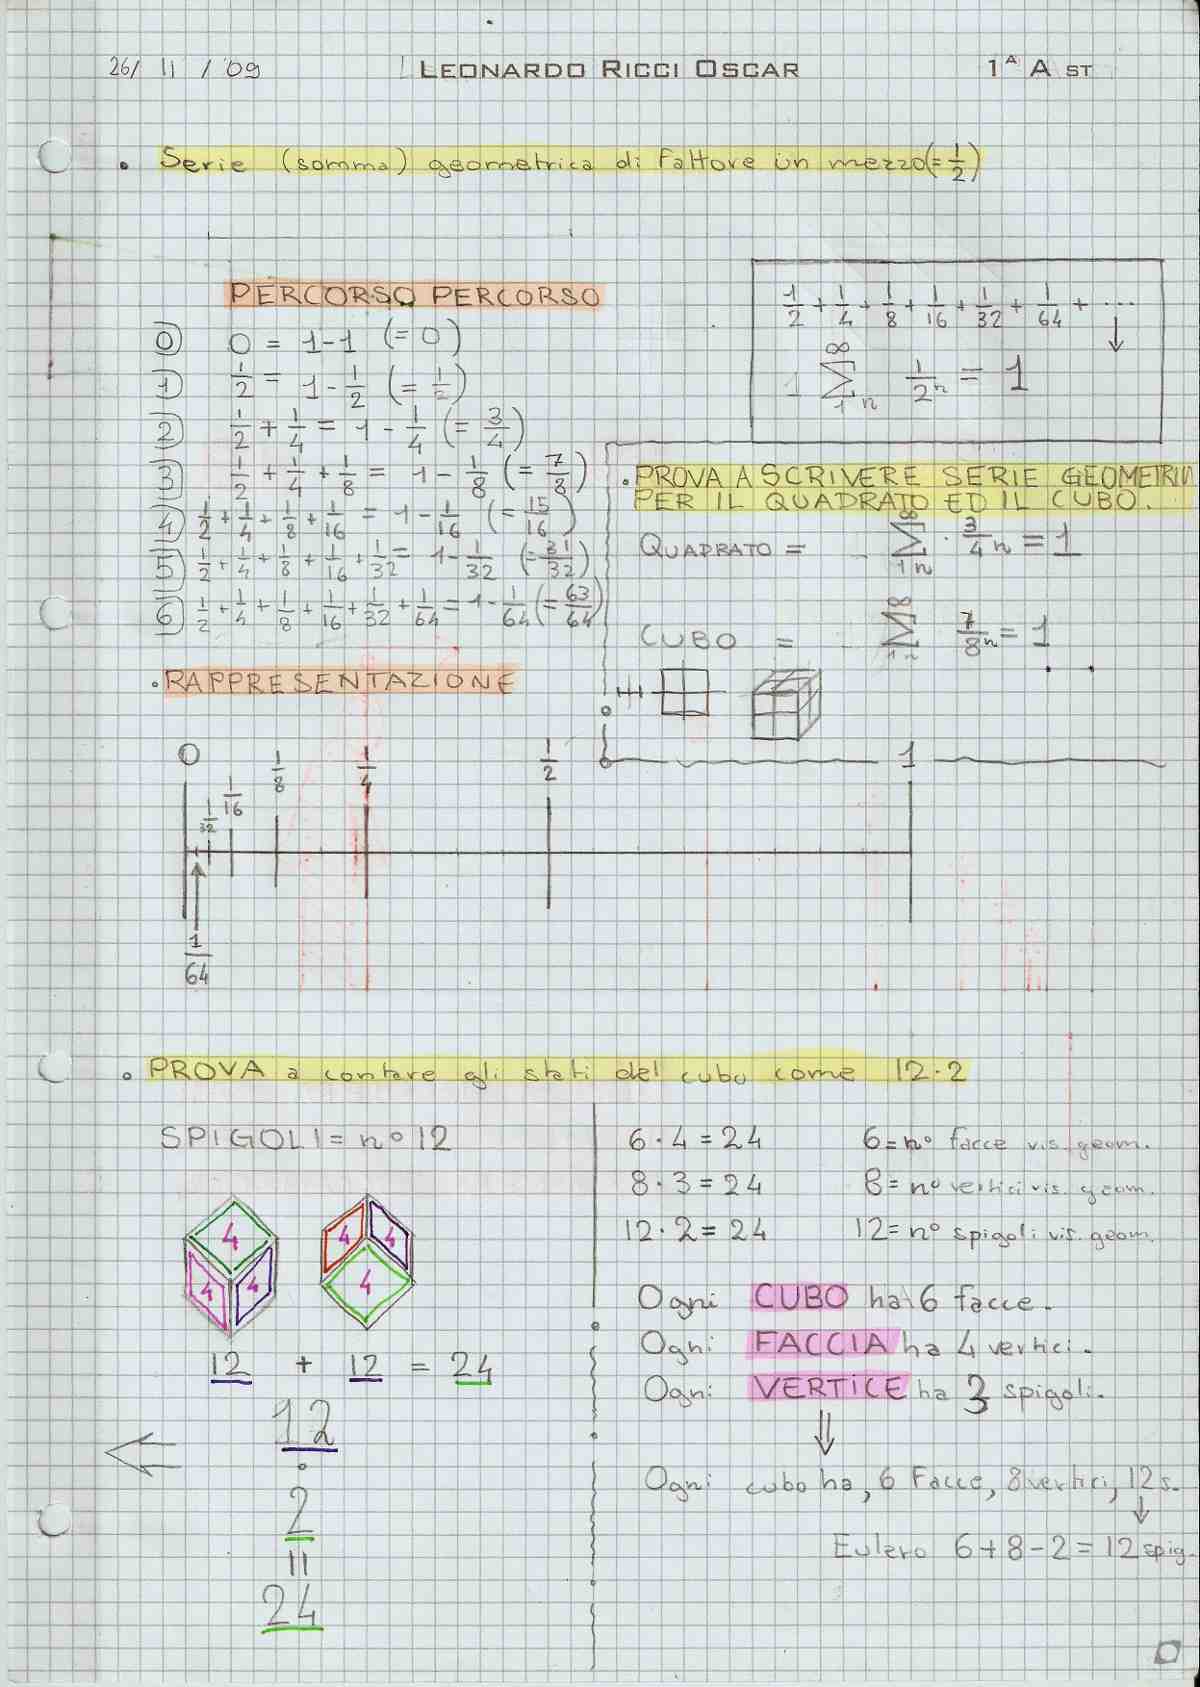 26/ 11 / '09 LEONARDO RICCI OSCAR 1ᴬ A ST
• Serie (somma) geometrica di fattore un mezzo (= 1/2)
PERCORSO PERCORSO
0) 0 = 1-1 (= 0)
1) 1/2 = 1 - 1/2 (= 1/2)
2) 1/2 + 1/4 = 1 - 1/4 (= 3/4)
3) 1/2 + 1/4 + 1/8 = 1 - 1/8 (= 7/8)
4) 1/2 + 1/4 + 1/8 + 1/16 = 1 - 1/16 (= 15/16)
5) 1/2 + 1/4 + 1/8 + 1/16 + 1/32 = 1 - 1/32 (= 31/32)
6) 1/2 + 1/4 + 1/8 + 1/16 + 1/32 + 1/64 = 1 - 1/64 (= 63/64)
1/2 + 1/4 + 1/8 + 1/16 + 1/32 + 1/64 + ...
∞ ∑ 1 n 1/2ⁿ = 1
• PROVA A SCRIVERE SERIE GEOMETRICH
PER IL QUADRATO ED IL CUBO.
QUADRATO = ∞ ∑ 1 n · 3/4ⁿ = 1
CUBO = ∞ ∑ 1 n 7/8ⁿ = 1
• RAPPRESENTAZIONE
0 1/32 1/16 1/8 1/4 1/2 1
1/64
• PROVA a contare gli stati del cubo come 12·2
SPIGOLI = n° 12
4 4 4
4 4 4
12 + 12 = 24
12
·
2
=
24
6 · 4 = 24 6 = n° facce vis. geom.
8 · 3 = 24 8 = n° vertici vis. geom.
12 · 2 = 24 12 = n° spigoli vis. geom.
Ogni CUBO ha 6 facce.
Ogni FACCIA ha 4 vertici.
Ogni VERTICE ha 3 spigoli.
Ogni cubo ha, 6 Facce, 8 vertici, 12 s.
Eulero 6 + 8 - 2 = 12 spig.